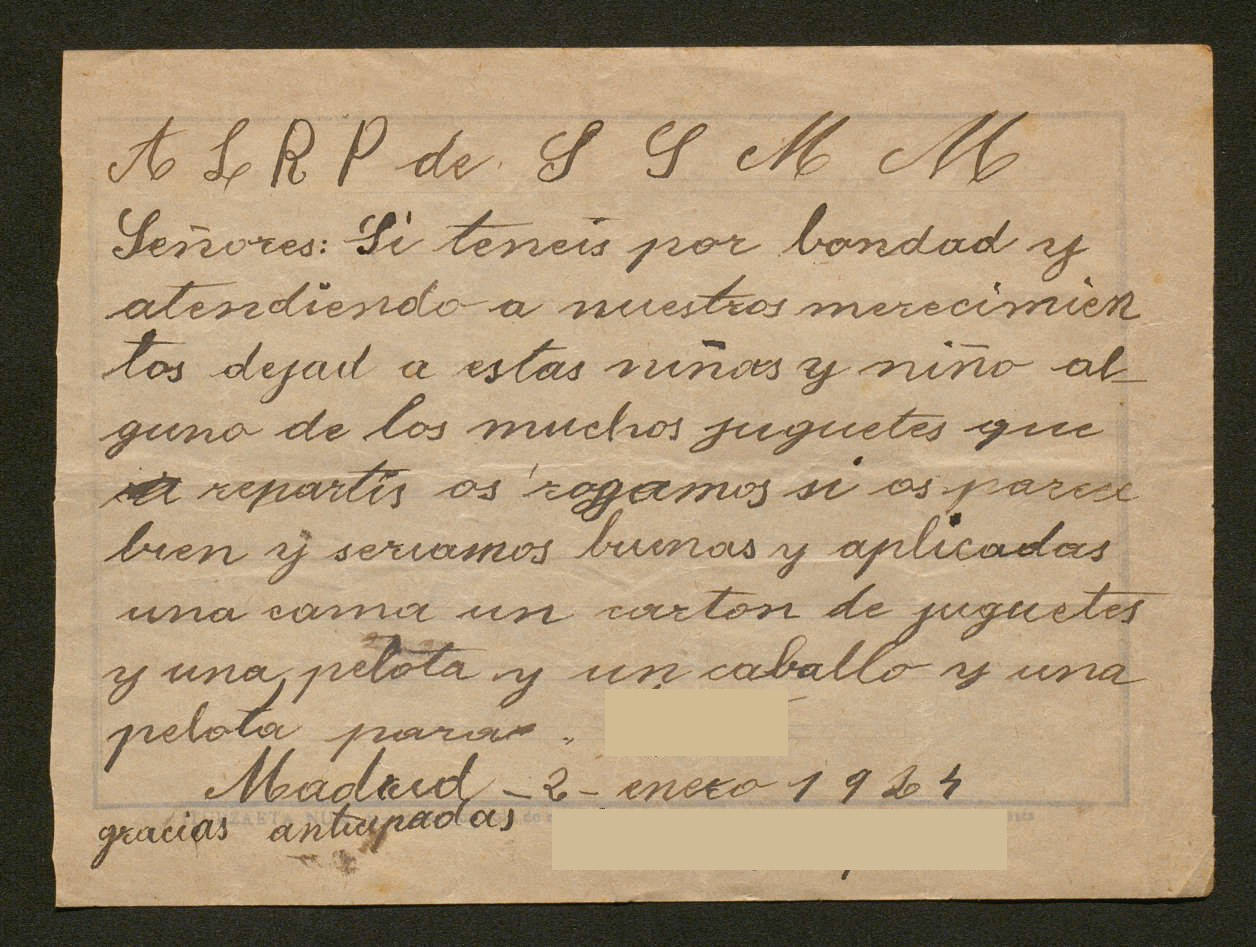 A L R P de S S M M
Señores: Si teneis por bondad y
atendiendo a nuestros merecimien
tos dejad a estas niñas y niño al_
guno de los muchos juguetes que
repartis os rogamos si os parece
bien y seriamos buenas y aplicadas
una cama un carton de juguetes
y una pelota y un caballo y una
pelota para
Madrid - 2 - enero 1924
gracias anticipadas